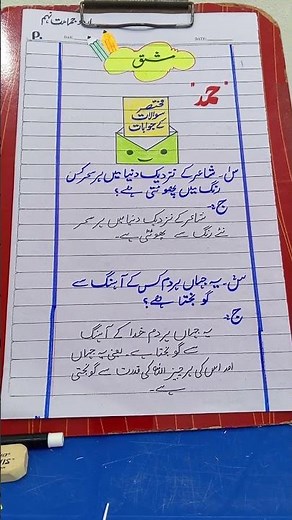 اردو جماعت نہم
P.
DATE:
مشق
"حمد"
مختصر
سوالات
کے جوابات
س۱۔ شاعر کے نزدیک دنیا میں ہر سحر کس
رنگ میں پھوٹتی ہے؟
ج:۔
شاعر کے نزدیک دنیا میں ہر سحر
نئے رنگ سے پھوٹتی ہے۔
س۲۔ یہ جہاں ہر دم کس کے آہنگ سے
گونجتا ہے؟
ج:۔
یہ جہاں ہر دم خدا کے آہنگ
سے گونجتا ہے۔ یعنی یہ جہاں
اور اس کی ہر چیز اللہ کی قدرت سے گونجتی
ہے۔